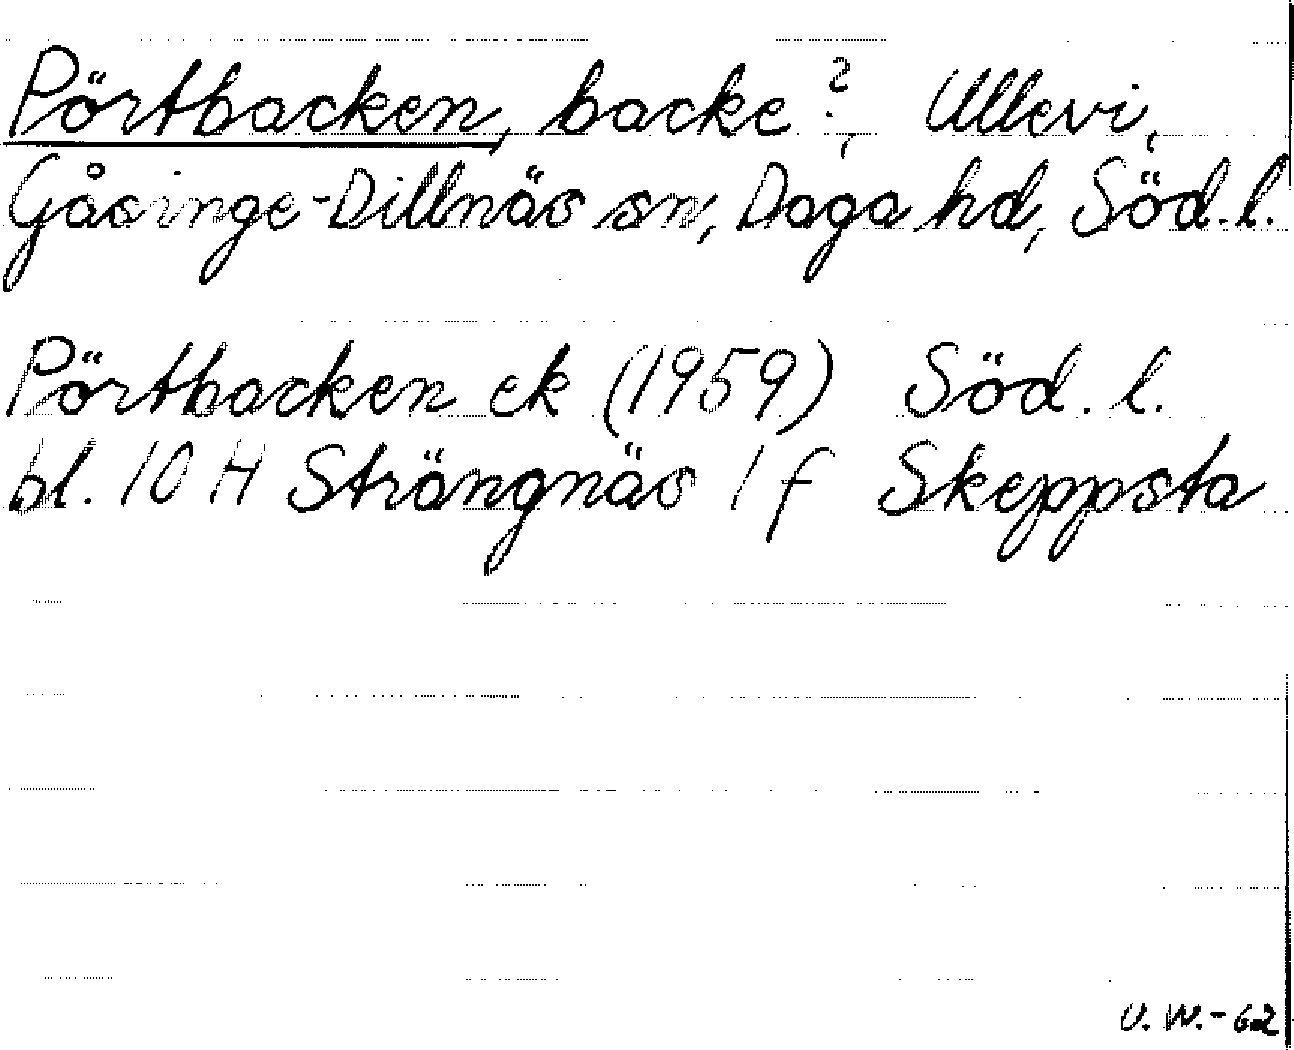 Pörtbacken, backe?, Ullevi,
Gåsinge-Dillnäs sn, Daga hd, Söd.l.
Pörtbacken ek (1959) Söd. l.
bl. 10 H Strängnäs 1 f Skeppsta
U.W.-62